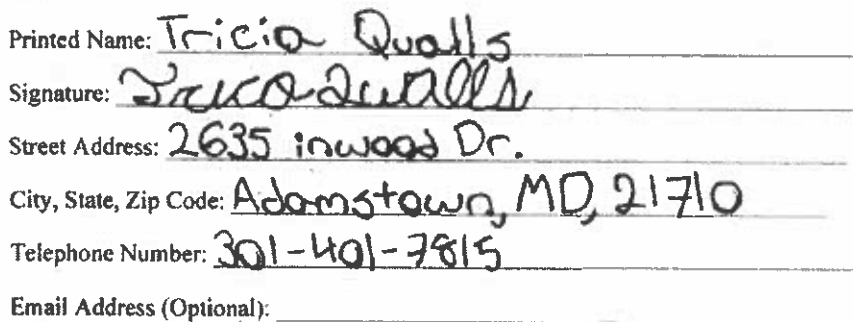 Printed Name: Tricia Qualls
Signature: Tricia Qualls
Street Address: 2635 inwood Dr.
City, State, Zip Code: Adamstown, MD, 21710
Telephone Number: 301-401-7815
Email Address (Optional):